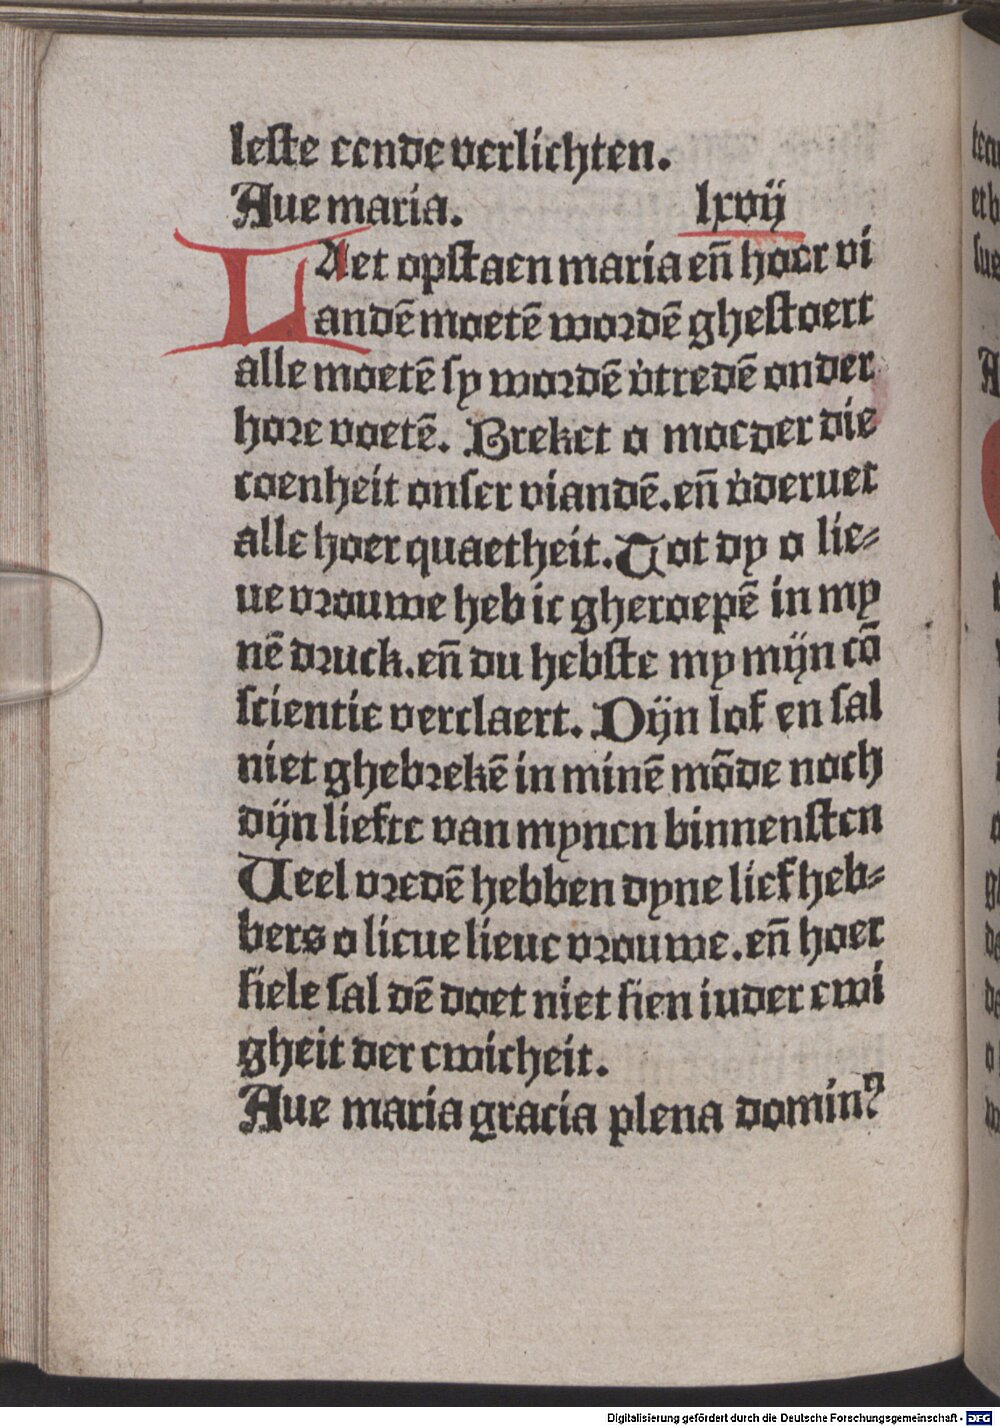 leste eende verlichten.
Aue maria. lxvij
LAet opstaen maria en̄ hoer vi
andē moetē wordē ghestoert
alle moetē sy wordē v̓tredē onder
hore voetē. Breket o moeder die
coenheit onser viandē. en̄ v̓deruet
alle hoer quaetheit. Tot dy o lie⸗
ue vrouwe heb ic gheroepē in my
nē druck. en̄ du hebste my mijn cō
scientie verclaert. Dijn lof en sal
niet ghebrekē in minē mōde noch
dijn liefte van mynen binnensten
Ueel vredē hebben dyne liefheb⸗
bers o lieue lieue vrouwe. en̄ hoer
siele sal dē doet niet sien in der ewi
gheit der ewicheit.
Aue maria gracia plena dominꝰ
Digitalisierung gefördert durch die Deutsche Forschungsgemeinschaft - DFG